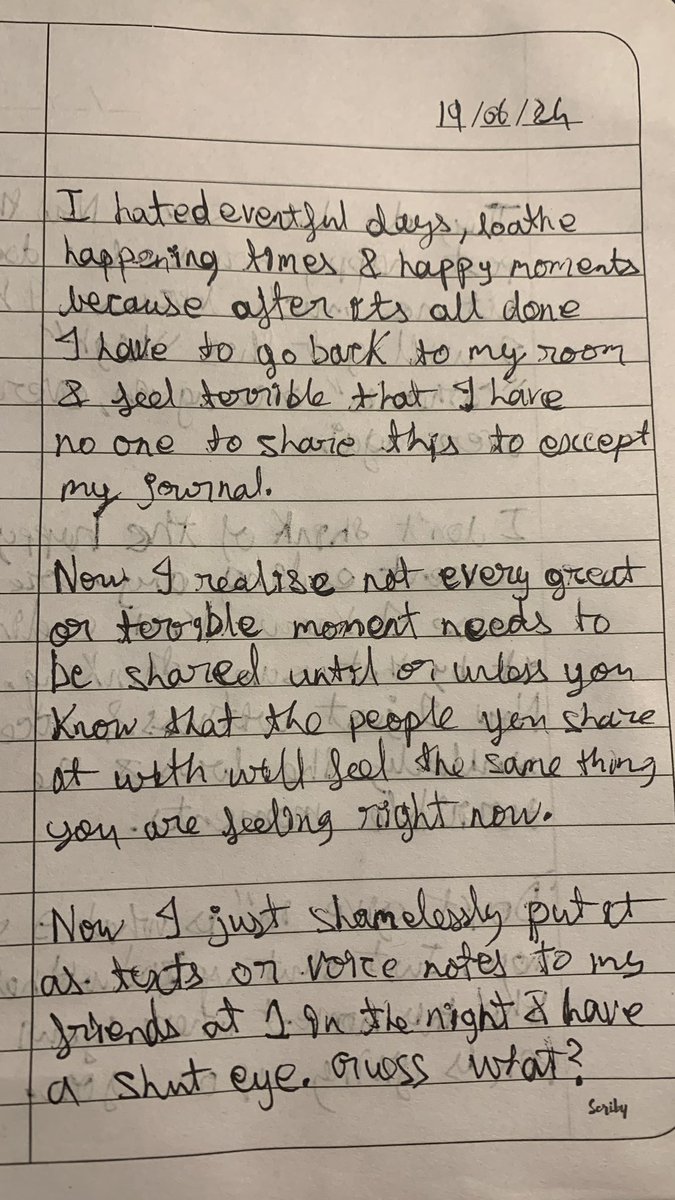 19/06/24
I hated eventful days, loathe
happening times & happy moments
because after its all done
I have to go back to my room
& feel terrible that I have
no one to share this to except
my journal.
Now I realise not every great
or terrible moment needs to
be shared until or unless you
know that the people you share
it with will feel the same thing
you are feeling right now.
Now I just shamelessly put it
as texts or voice notes to my
friends at 1 in the night & have
a shut eye. Guess what?
Scriby